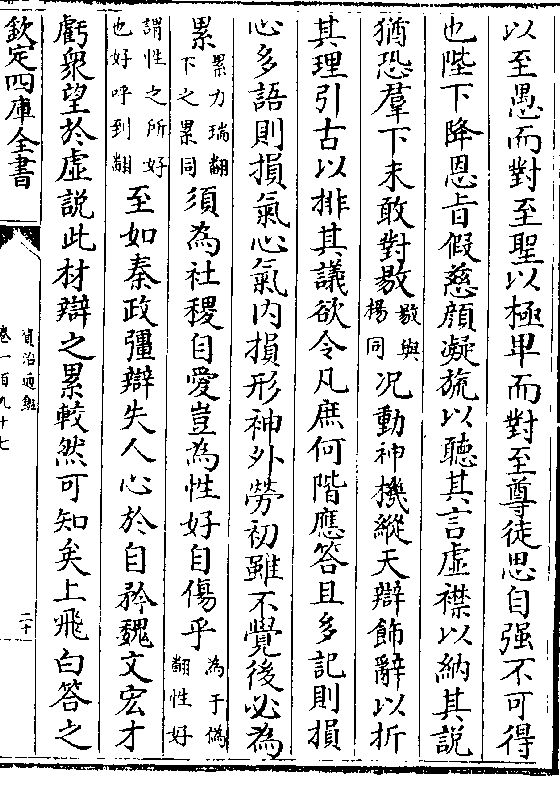 以至愚而對至聖以極卑而對至尊徒思自强不可得
也陛下降恩旨假慈顔凝旒以聽其言虚襟以納其説
猶恐羣下未敢對敭敭與揚同况動神機縱天辯飾辭以折
其理引古以排其議欲令凡庶何階應答且多記則損
心多語則損氣心氣内損形神外勞初雖不覺後必為
累累力瑞翻下之累同須為社稷自愛豈為性好自傷乎為于偽翻性好
謂性之所好也好呼到翻至如秦政彊辯失人心於自矜魏文宏才
虧衆望於虚説此材辯之累較然可知矣上飛白答之
欽定四庫全書
資治通鑑
卷一百九十七
二十